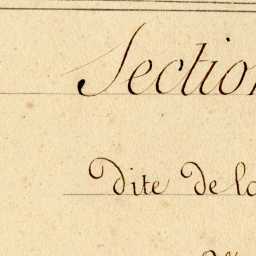 Section
Dite de la